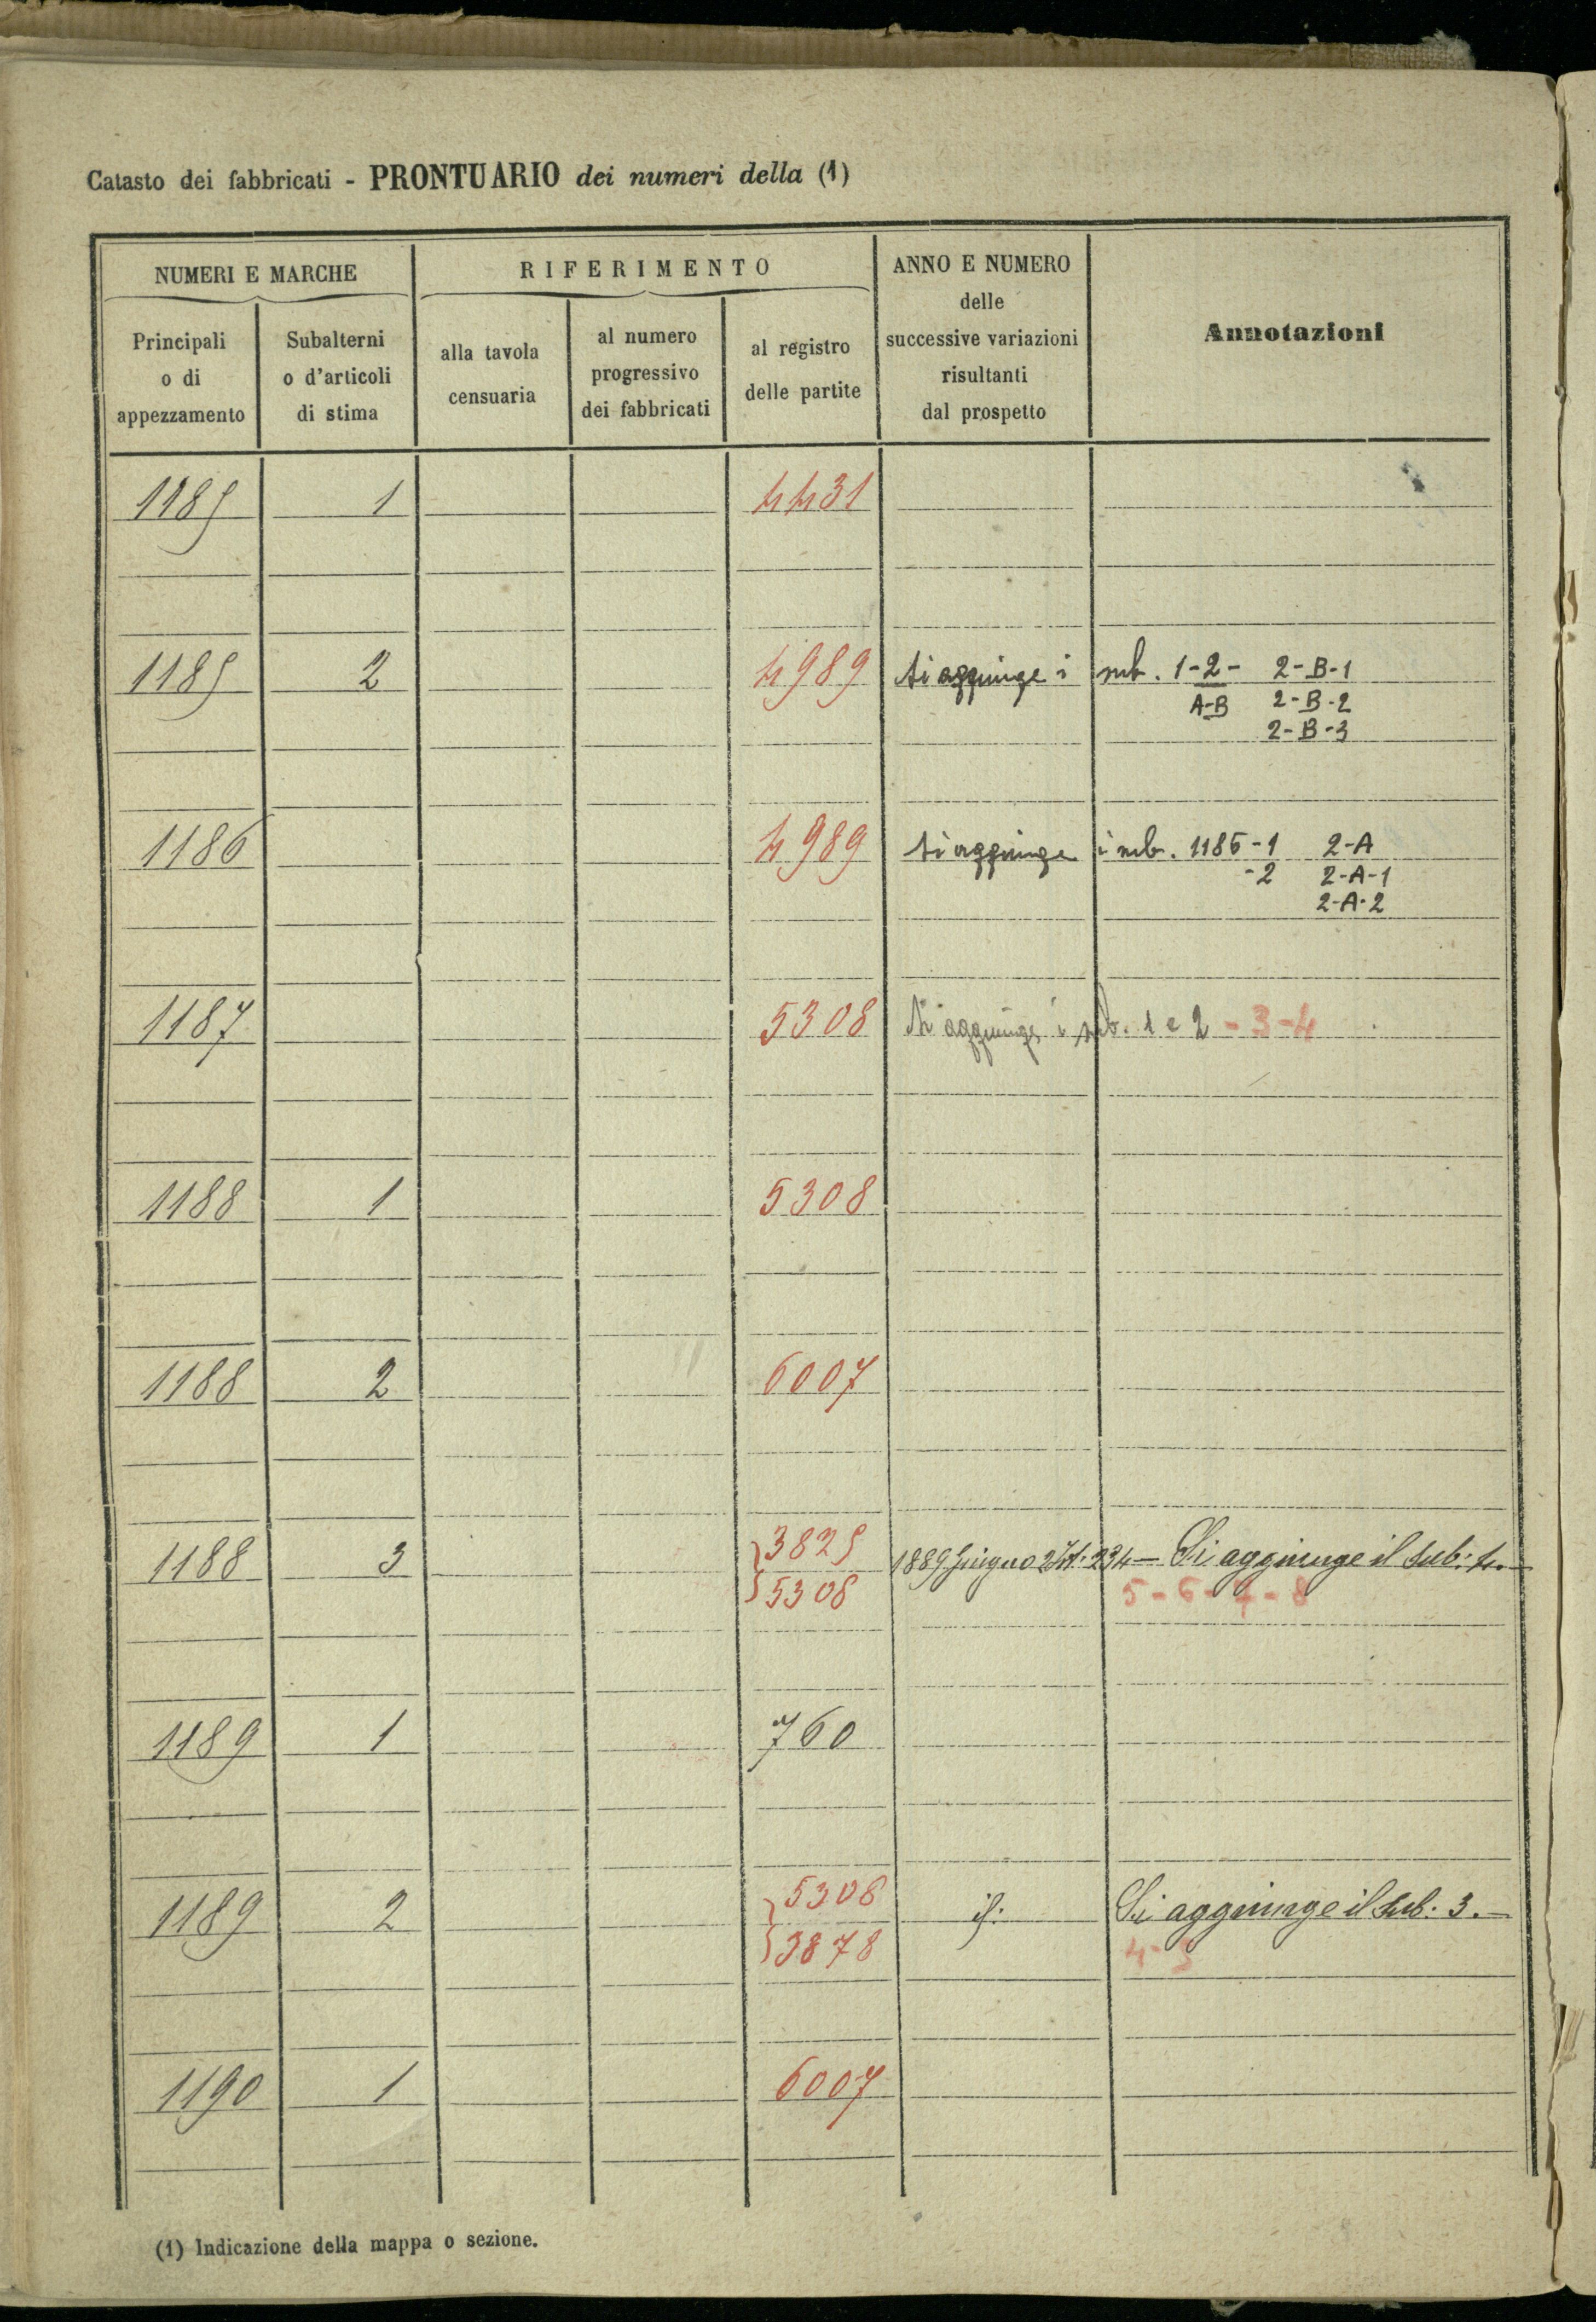 Catasto dei fabbricati - PRONTUARIO dei numeri della (1)
NUMERI E MARCHE
RIFERIMENTO
ANNO E NUMERO
delle
successive variazioni
risultanti
dal prospetto
Annotazioni
Principali
o di
appezzamento
Subalterni
o d'articoli
di stima
alla tavola
censuaria
al numero
progressivo
dei fabbricati
al registro
delle partite
1185 1 4431
1185 2 4989 si aggiunge i sub. 1-2- 2-B-1
A-B 2-B-2
2-B-3
1186 4989 si aggiunge i sub. 1186-1 2-A
-2 2-A-1
2-A-2
1187 5308 Si aggiunge i sub. 1 e 2 - 3-4
1188 1 5308
1188 2 6007
1188 3 3825 1889 Giugno 234 — Si aggiunge il sub: 4.—
5308 5-6-7-8
1189 1 760
1189 2 5308 Si aggiunge il sub: 3.—
3878 4-5
1190 1 6007
(1) Indicazione della mappa o sezione.